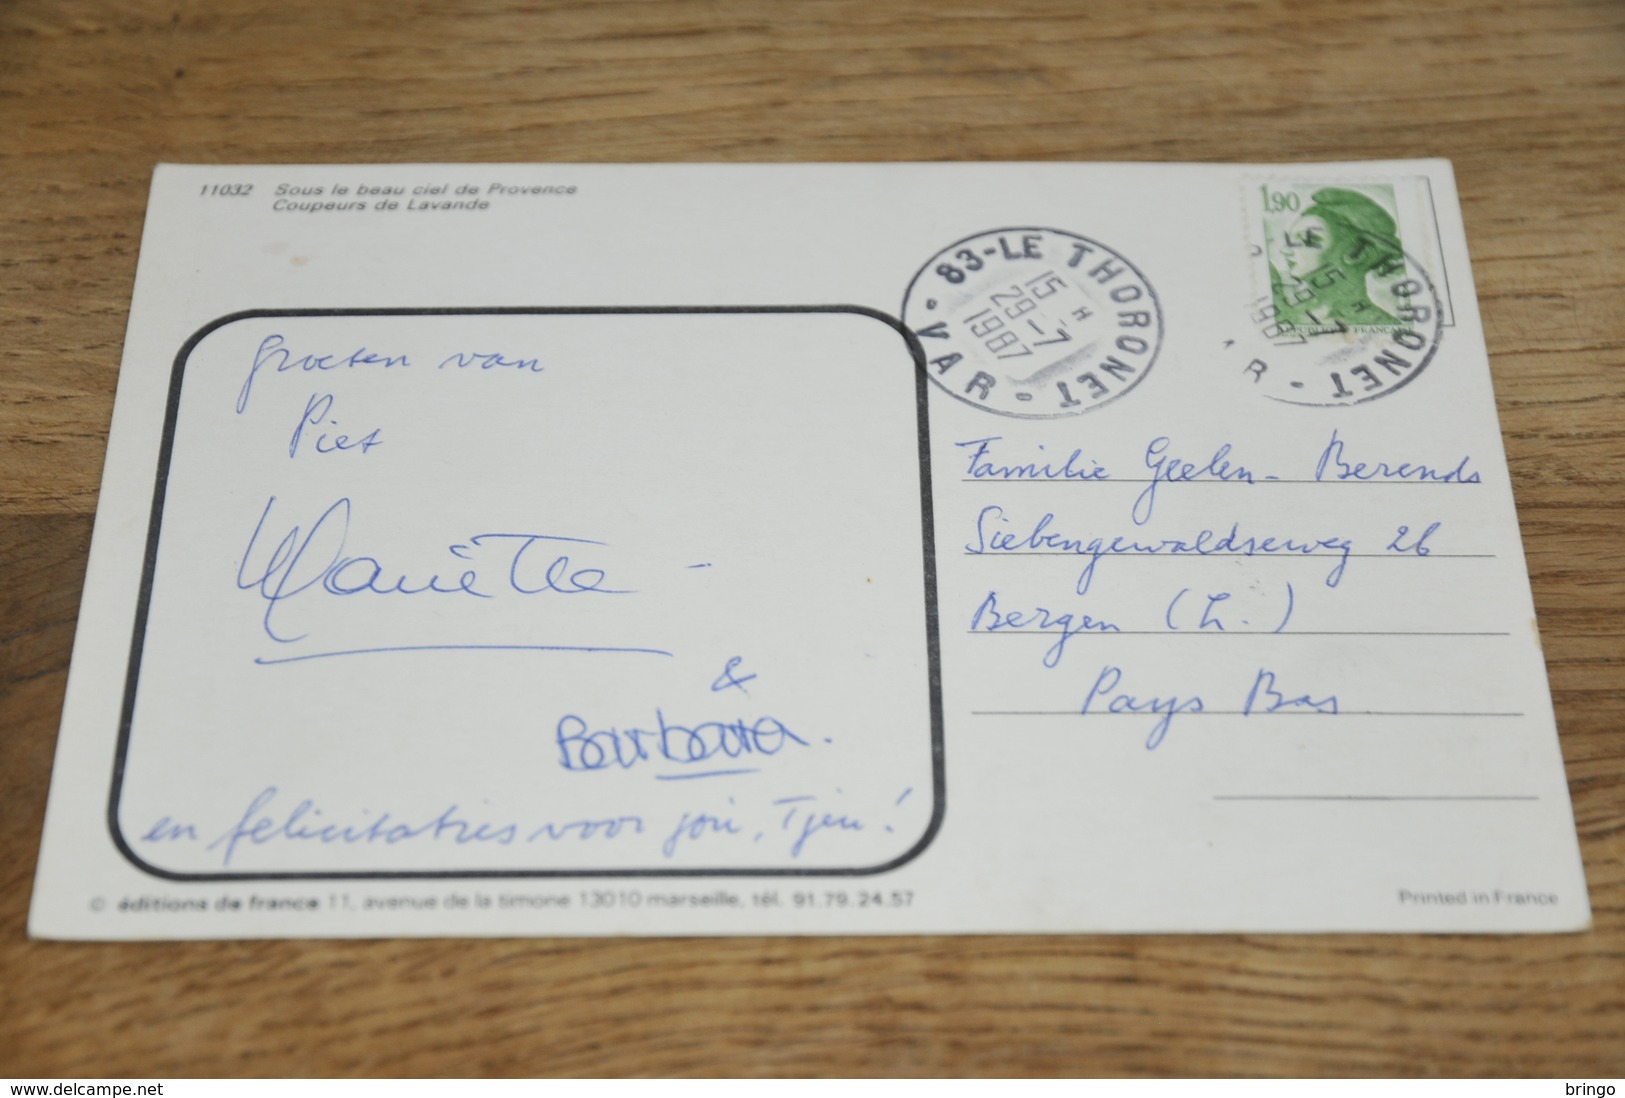 11032 Sous le beau ciel de Provence
Coupeurs de Lavande
83-LE THORONET
15 H
29-7
1987
- VAR -
1,90
LE THORONET
15 H
29-7
1987
REPUBLIQUE FRANCAISE
groeten van
Piet
Mariëtte -
&
Barbara.
en felicitaties voor jou, Tjeu!
Familie Geelen - Berends
Siebengewaldseweg 26
Bergen (L.)
Pays Bas
© éditions de france 11, avenue de la timone 13010 marseille, tél. 91.79.24.57
Printed in France
www.delcampe.net
bringo